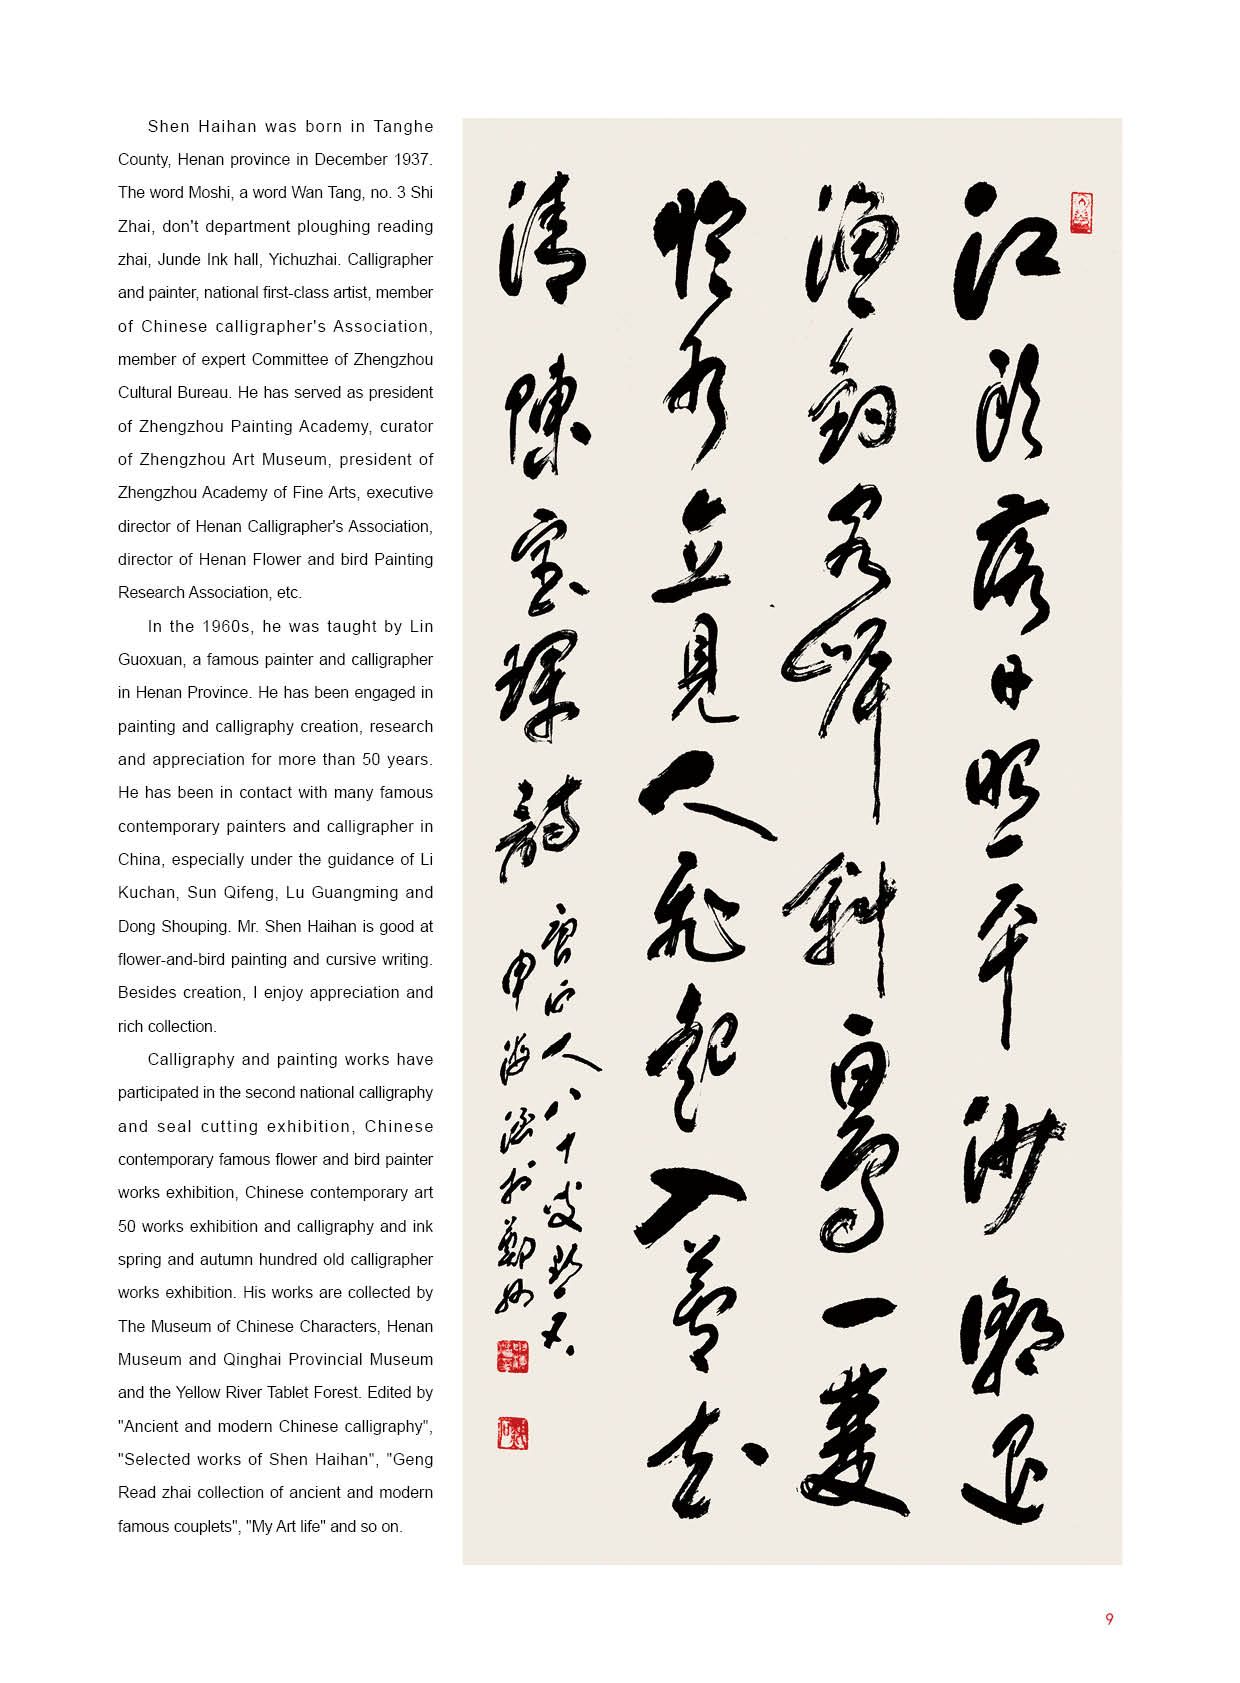 Shen Haihan was born in Tanghe
County, Henan province in December 1937.
The word Moshi, a word Wan Tang, no. 3 Shi
Zhai, don't department ploughing reading
zhai, Junde Ink hall, Yichuzhai. Calligrapher
and painter, national first-class artist, member
of Chinese calligrapher's Association,
member of expert Committee of Zhengzhou
Cultural Bureau. He has served as president
of Zhengzhou Painting Academy, curator
of Zhengzhou Art Museum, president of
Zhengzhou Academy of Fine Arts, executive
director of Henan Calligrapher's Association,
director of Henan Flower and bird Painting
Research Association, etc.
In the 1960s, he was taught by Lin
Guoxuan, a famous painter and calligrapher
in Henan Province. He has been engaged in
painting and calligraphy creation, research
and appreciation for more than 50 years.
He has been in contact with many famous
contemporary painters and calligrapher in
China, especially under the guidance of Li
Kuchan, Sun Qifeng, Lu Guangming and
Dong Shouping. Mr. Shen Haihan is good at
flower-and-bird painting and cursive writing.
Besides creation, I enjoy appreciation and
rich collection.
Calligraphy and painting works have
participated in the second national calligraphy
and seal cutting exhibition, Chinese
contemporary famous flower and bird painter
works exhibition, Chinese contemporary art
50 works exhibition and calligraphy and ink
spring and autumn hundred old calligrapher
works exhibition. His works are collected by
The Museum of Chinese Characters, Henan
Museum and Qinghai Provincial Museum
and the Yellow River Tablet Forest. Edited by
"Ancient and modern Chinese calligraphy",
"Selected works of Shen Haihan", "Geng
Read zhai collection of ancient and modern
famous couplets", "My Art life" and so on.
江頭落日照平沙潮退
漁岸斜白鳥一雙
臨水立見人飛起入蘆花
清陳寶琛詩
唐河人八十歲
申海涵於鄭州
9